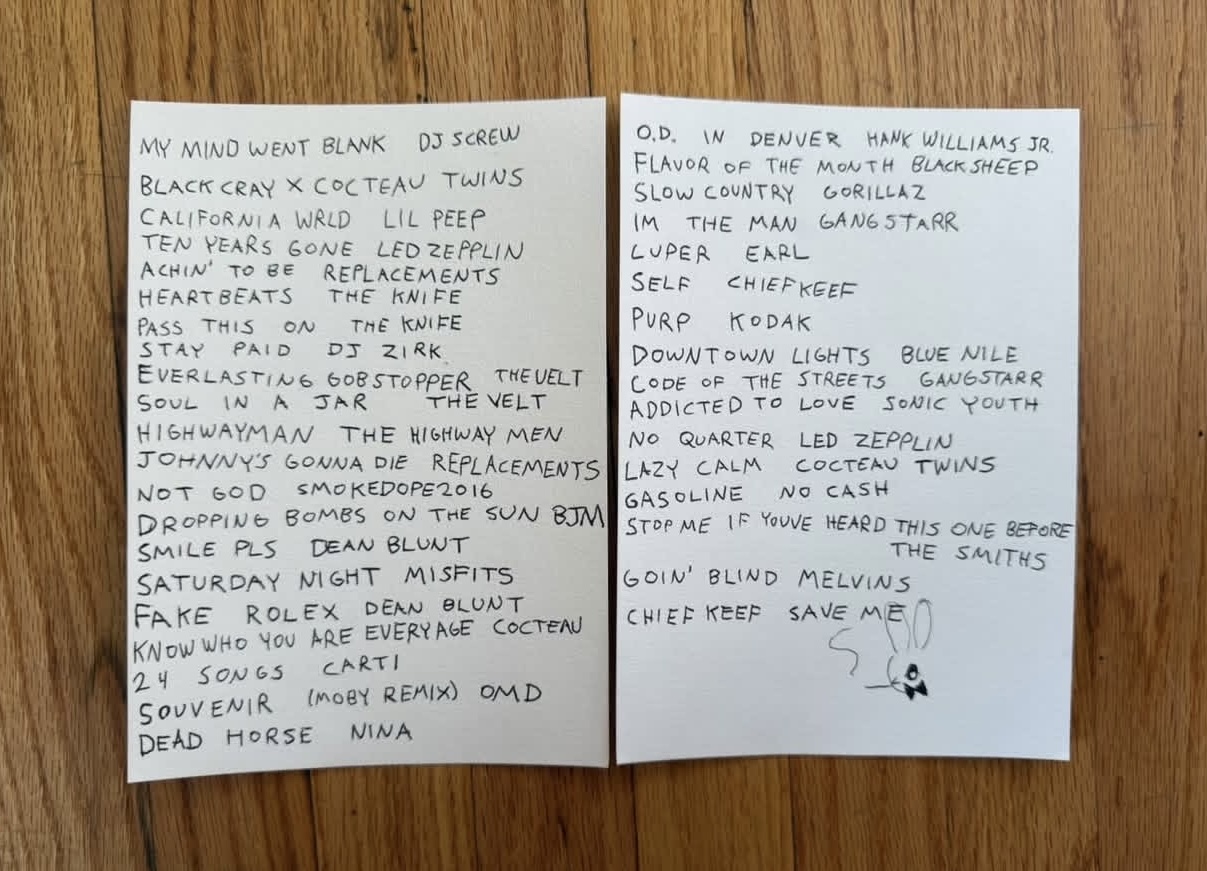 MY MIND WENT BLANK DJ SCREW
BLACK CRAY X COCTEAU TWINS
CALIFORNIA WRLD LIL PEEP
TEN YEARS GONE LED ZEPPLIN
ACHIN' TO BE REPLACEMENTS
HEARTBEATS THE KNIFE
PASS THIS ON THE KNIFE
STAY PAID DJ ZIRK
EVERLASTING GOBSTOPPER THE VELT
SOUL IN A JAR THE VELT
HIGHWAYMAN THE HIGHWAY MEN
JOHNNY'S GONNA DIE REPLACEMENTS
NOT GOD SMOKEDOPE2016
DROPPING BOMBS ON THE SUN BJM
SMILE PLS DEAN BLUNT
SATURDAY NIGHT MISFITS
FAKE ROLEX DEAN BLUNT
KNOW WHO YOU ARE EVERY AGE COCTEAU
24 SONGS CARTI
SOUVENIR (MOBY REMIX) OMD
DEAD HORSE NINA
O.D. IN DENVER HANK WILLIAMS JR.
FLAVOR OF THE MONTH BLACK SHEEP
SLOW COUNTRY GORILLAZ
IM THE MAN GANGSTARR
LUPER EARL
SELF CHIEF KEEF
PURP KODAK
DOWNTOWN LIGHTS BLUE NILE
CODE OF THE STREETS GANGSTARR
ADDICTED TO LOVE SONIC YOUTH
NO QUARTER LED ZEPPLIN
LAZY CALM COCTEAU TWINS
GASOLINE NO CASH
STOP ME IF YOUVE HEARD THIS ONE BEFORE
THE SMITHS
GOIN' BLIND MELVINS
CHIEF KEEF SAVE ME